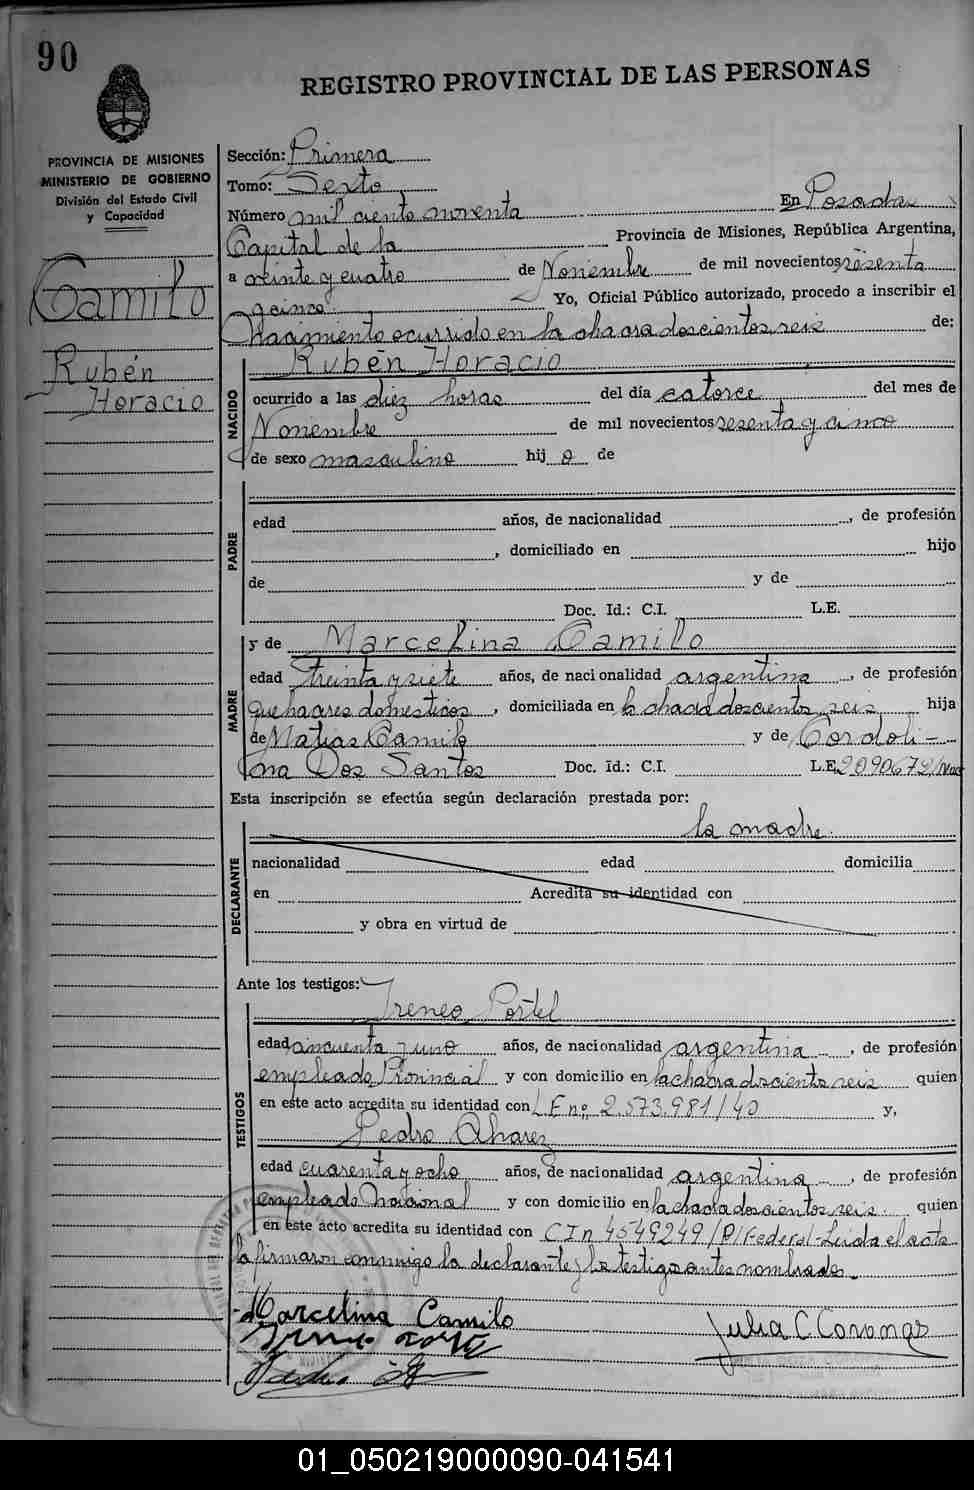 90
REGISTRO PROVINCIAL DE LAS PERSONAS
PROVINCIA DE MISIONES
MINISTERIO DE GOBIERNO
División del Estado Civil
y Capacidad
Camilo
Rubén
Horacio
Sección: Primera
Tomo: Sexto
Número mil ciento noventa En Posadas
Capital de la Provincia de Misiones, República Argentina,
a veinte y cuatro de Noviembre de mil novecientos sesenta
y cinco Yo, Oficial Público autorizado, procedo a inscribir el
Nacimiento ocurrido en la chacra doscientos seis de:
NACIDO
Rubén Horacio
ocurrido a las diez horas del día catorce del mes de
Noviembre de mil novecientos sesenta y cinco
de sexo masculino hij o de
PADRE
edad años, de nacionalidad , de profesión
, domiciliado en hijo
de y de
Doc. Id.: C.I. L.E.
MADRE
y de Marcelina Camilo
edad treinta y siete años, de nacionalidad argentina , de profesión
quehaceres domésticos , domiciliada en la chacra doscientos seis hija
de Matias Camilo y de Cordoli-
na Dos Santos Doc. Id.: C.I. L.E. 2090672/
Esta inscripción se efectúa según declaración prestada por:
la madre.
DECLARANTE
nacionalidad edad domicilia
en Acredita su identidad con
y obra en virtud de
Ante los testigos:
TESTIGOS
Ireneo Portel
edad cincuenta y uno años, de nacionalidad argentina , de profesión
empleado Provincial y con domicilio en la chacra doscientos seis quien
en este acto acredita su identidad con L.E nº 2.573.981/40 y,
Pedro Alvarez
edad cuarenta y ocho años, de nacionalidad argentina , de profesión
empleado Nacional y con domicilio en la chacra doscientos seis. quien
en este acto acredita su identidad con C I n 4549249/P/Federal-Leida el acta
la firmaron conmigo la declarante y los testigos antes nombrados.
Marcelina Camilo
Julia C Coronas
01_050219000090-041541